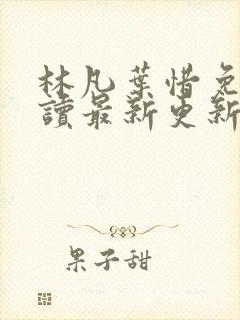 林凡葉惜免
讀最新更新
果子甜